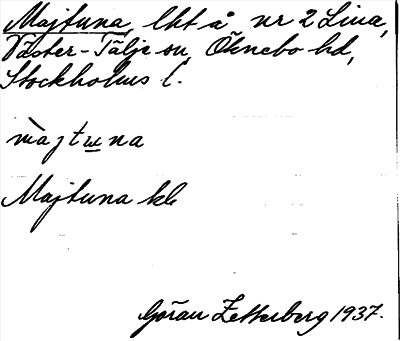 Majtuna, lht å nr 2 Lina,
Väster-Tälje sn, Öknebo hd,
Stockholms l.
màjtuna
Majtuna kb
Göran Zetterberg 1937.